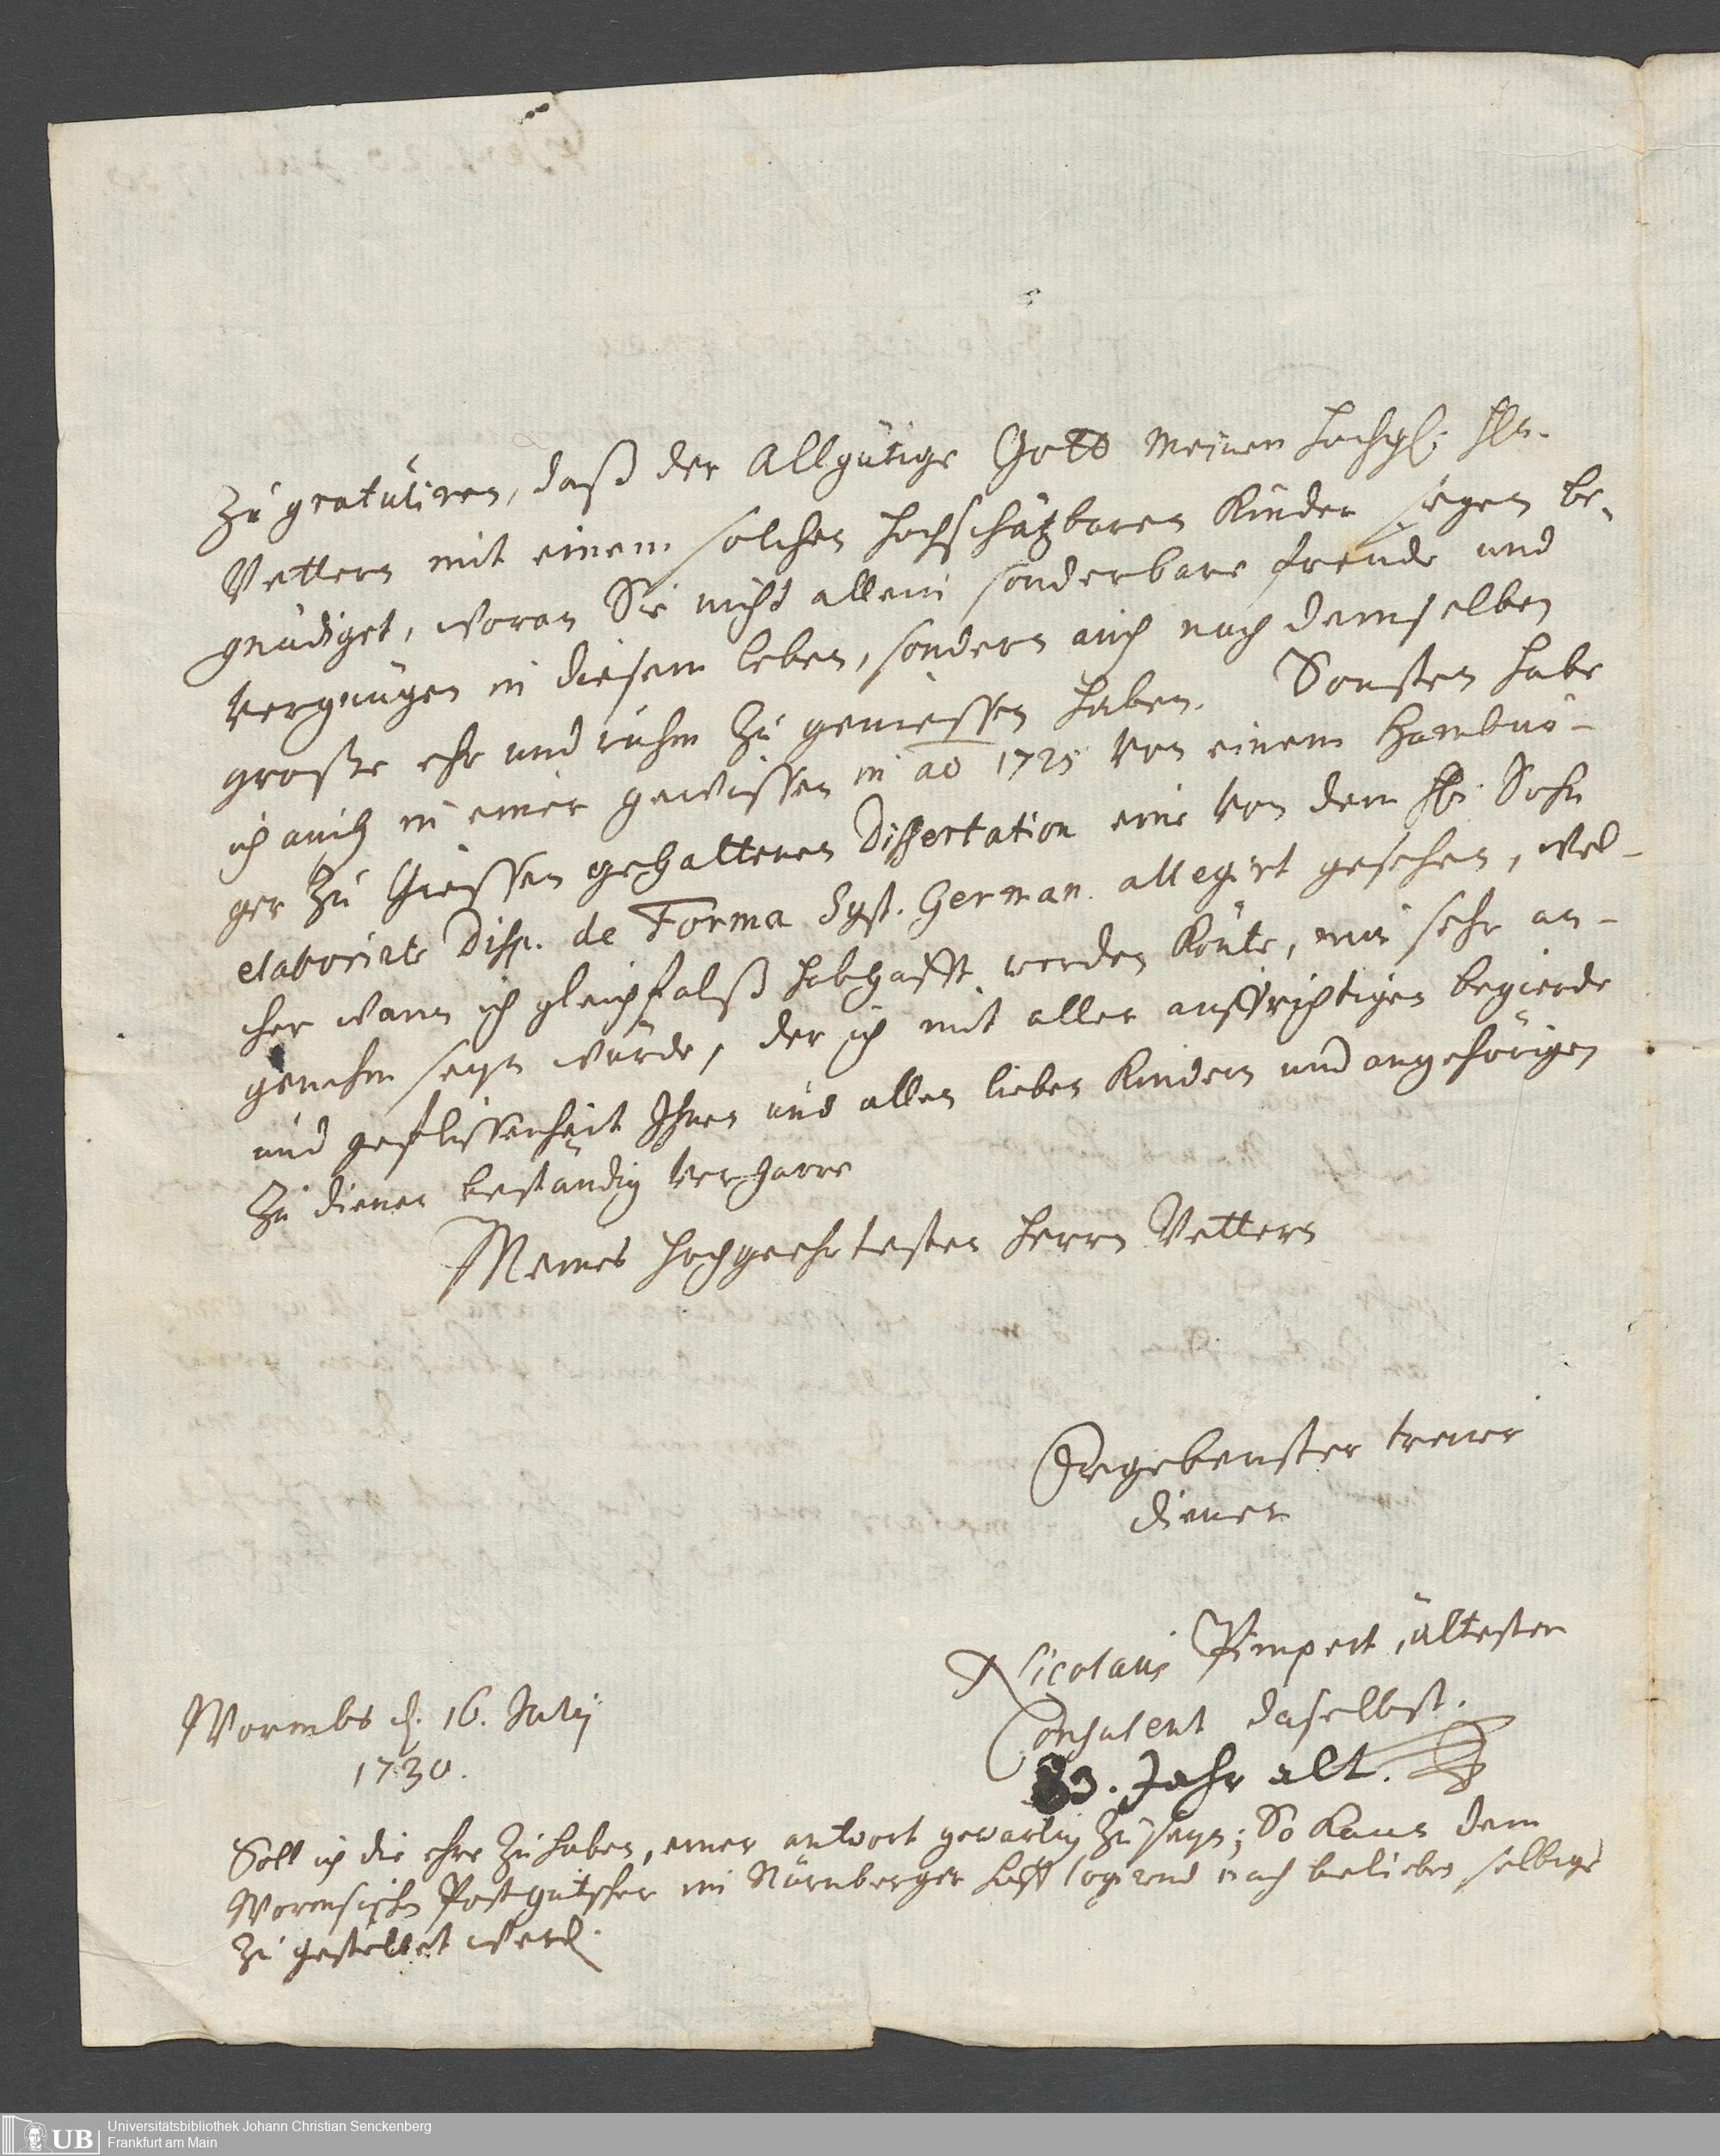 Zu gratuliren, daß der Allgütige Gott meinen hochg. Hr.
Vettern mit einem solchen hochschätzbaren Kinder segen be-
gnädiget, woran Sie nicht allein sonderbare freude und
Vergnügen in diesem leben, sondern auch nach demselben
große ehr und ruhm zu geniessen haben. Sonsten habe
ich auch in einer gewissen in ao 1725 von einem Hambur-
ger zu Giessen gehaltenen Dissertation eine von dem Hr. Sohn
elaborirte Diss. de Forma Syst. German. allegirt gesehen, wel-
cher wann ich gleichfalß habhafft werden könte, mir sehr an-
genehm seyn würde, der ich mit aller auffrichtigen begierde
und geflissenheit Ihnen und allen lieben Kindern und angehörigen
zu dienen beständig verharre
Meines hochgeehrtesten Herrn Vettern
Ergebenster treuer
diener
Nicolaus Pimpert, ältester
Consulent daselbst.
83. Jahr alt.
Wormbs d. 16. July
1730.
Solt ich die ehre zu haben, einer antwort gewärtig zu seyn; So kann dem
Wormsischen Postgutscher im Nürnberger hoff logirend nach belieben selbige
zu gestellet werd.
Universitätsbibliothek Johann Christian Senckenberg
Frankfurt am Main
UB